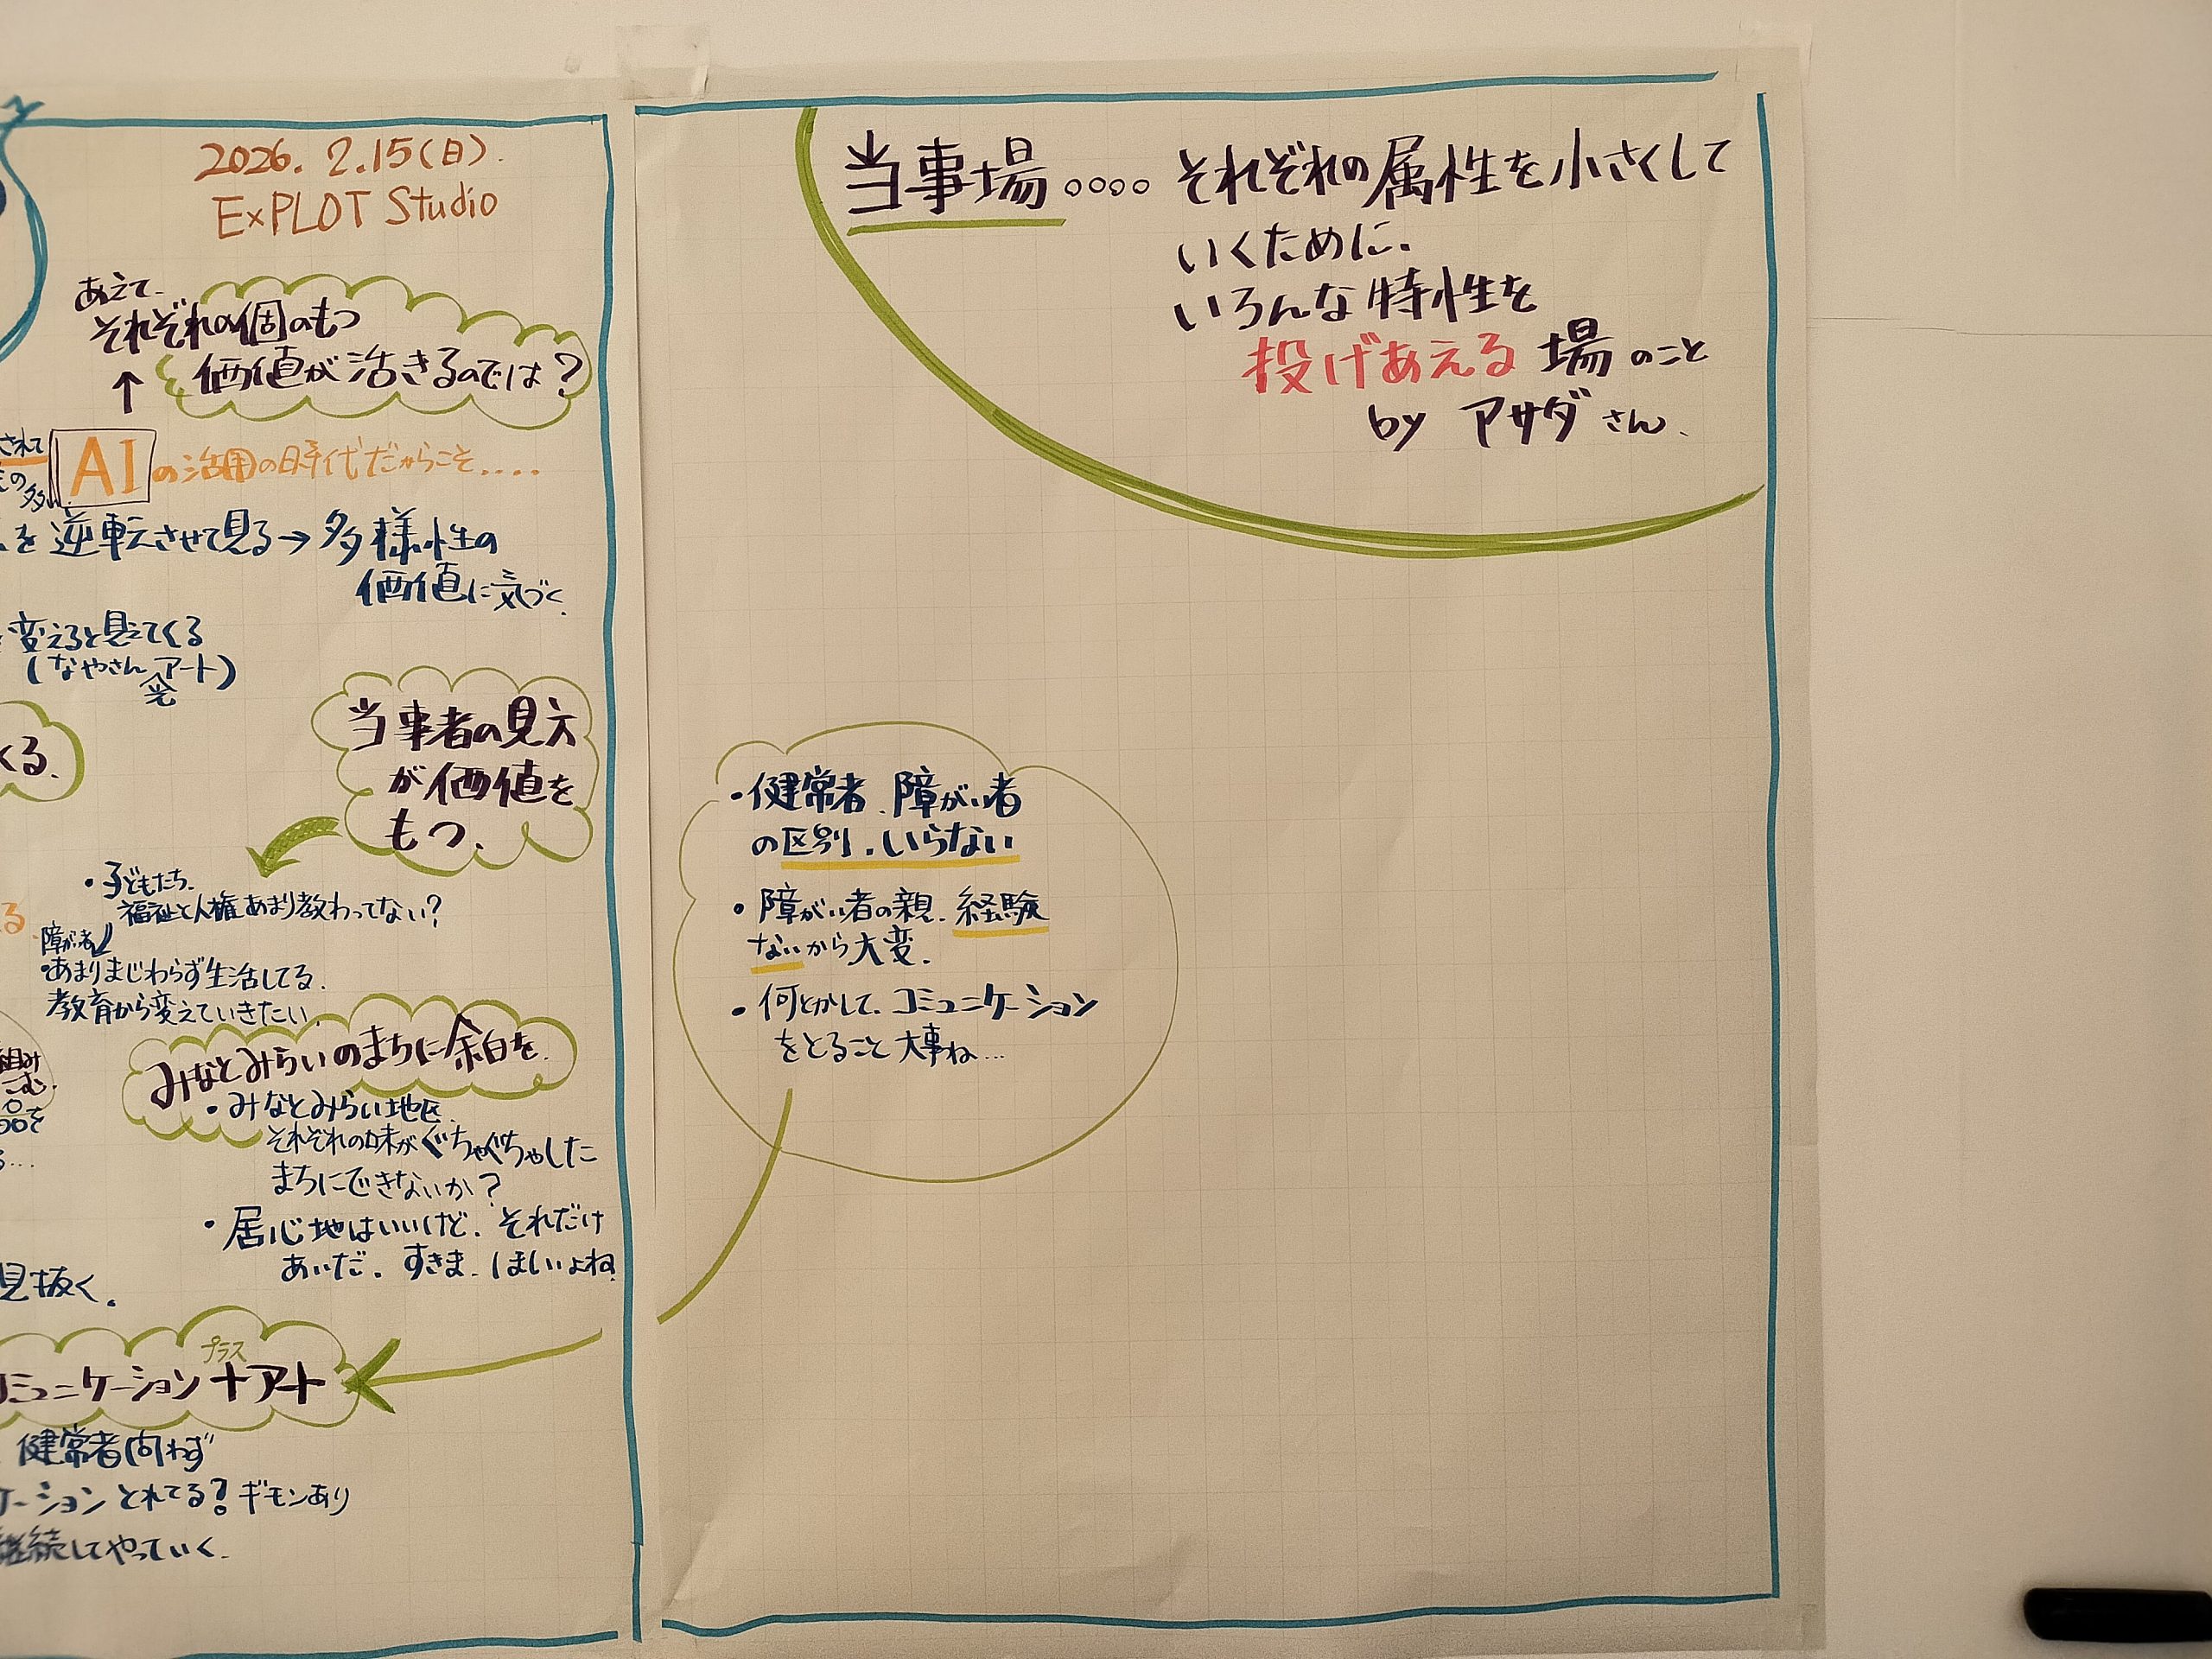 2026. 2.15(日).
ExPLOT Studio
あえて、
それぞれの個のもつ
価値が活きるのでは?
↑
されて
AIの活用の時代だからこそ....
を逆転させて見る→多様性の
価値に気づく.
変えると見えてくる
(なやさん アート)
くる.
当事者の見方
が価値を
もつ.
・子どもたち.
福祉と人権あまり教わってない?
る.
障がい者
・あまりまじわらず生活してる.
教育から変えていきたい.
組み
こむ.
みなとみらいのまちに余白を.
・みなとみらい地区.
それぞれの味がぐちゃぐちゃした
まちにできないか?
・居心地はいいけど. それだけ
あいだ. すきま. ほしいよね
見抜く.
プラス
コミュニケーション+アート
健常者問わず
ケーションとれてる?ギモンあり
継続してやっていく.
当事場。。。。それぞれの属性を小さくして
いくために.
いろんな特性を
投げあえる場のこと
by アサダさん.
・健常者、障がい者
の区別.いらない
・障がい者の親. 経験
ないから大変.
・何とかして、コミュニケーション
をとること大事ね...